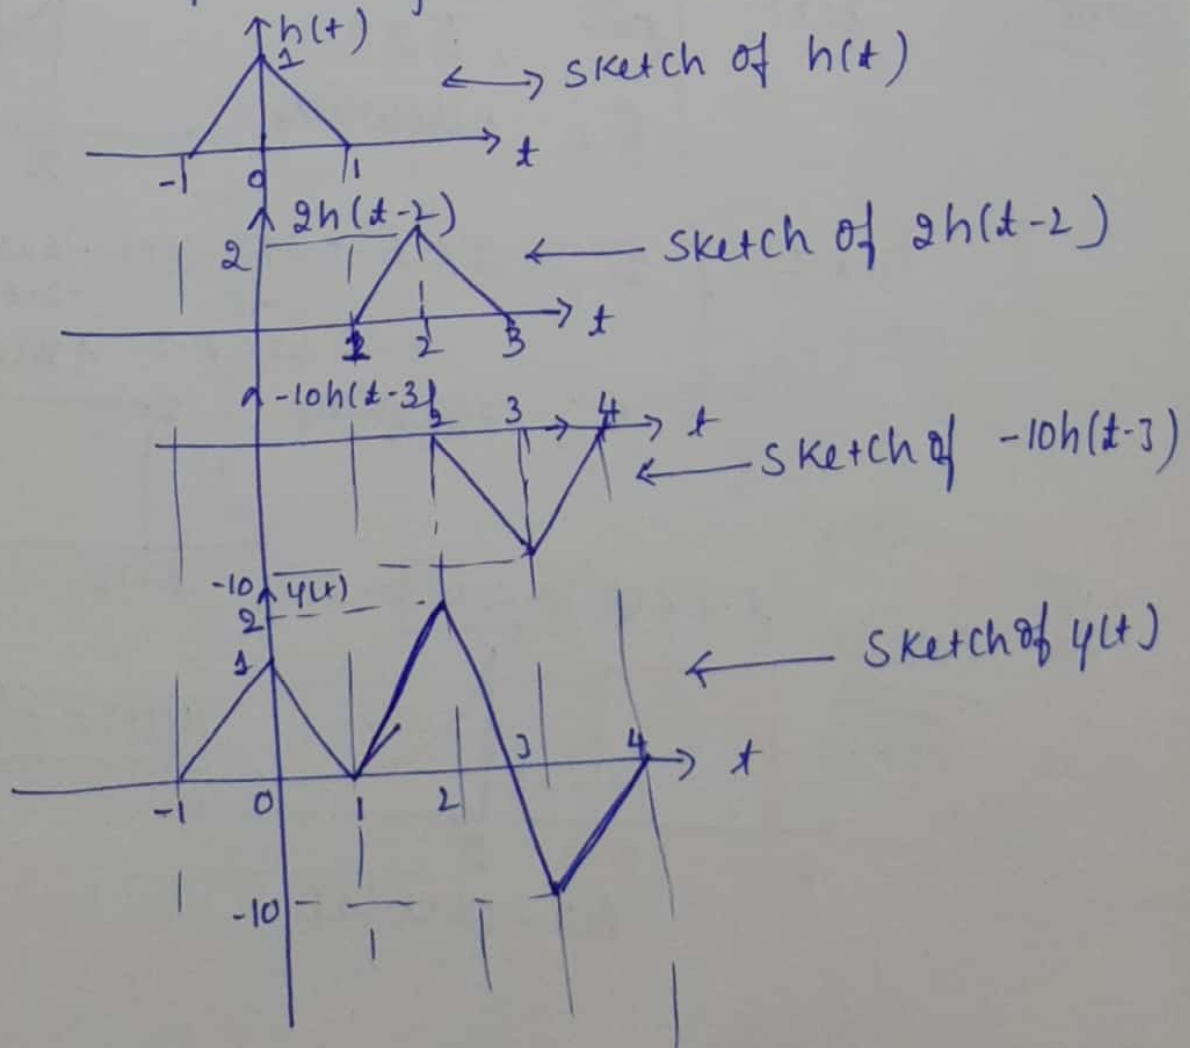 h(t)
1
sketch of h(t)
t
-1 0 1
2h(t-2)
2
sketch of 2h(t-2)
t
1 2 3
-10h(t-3)
2 3 4
t
sketch of -10h(t-3)
-10
y(t)
2
1
sketch of y(t)
3 4
t
-1 0 1 2
-10